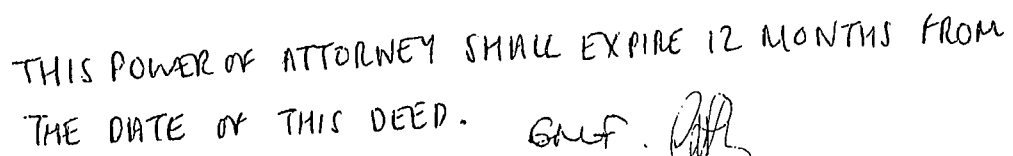 THIS POWER OF ATTORNEY SHALL EXPIRE 12 MONTHS FROM
THE DATE OF THIS DEED.